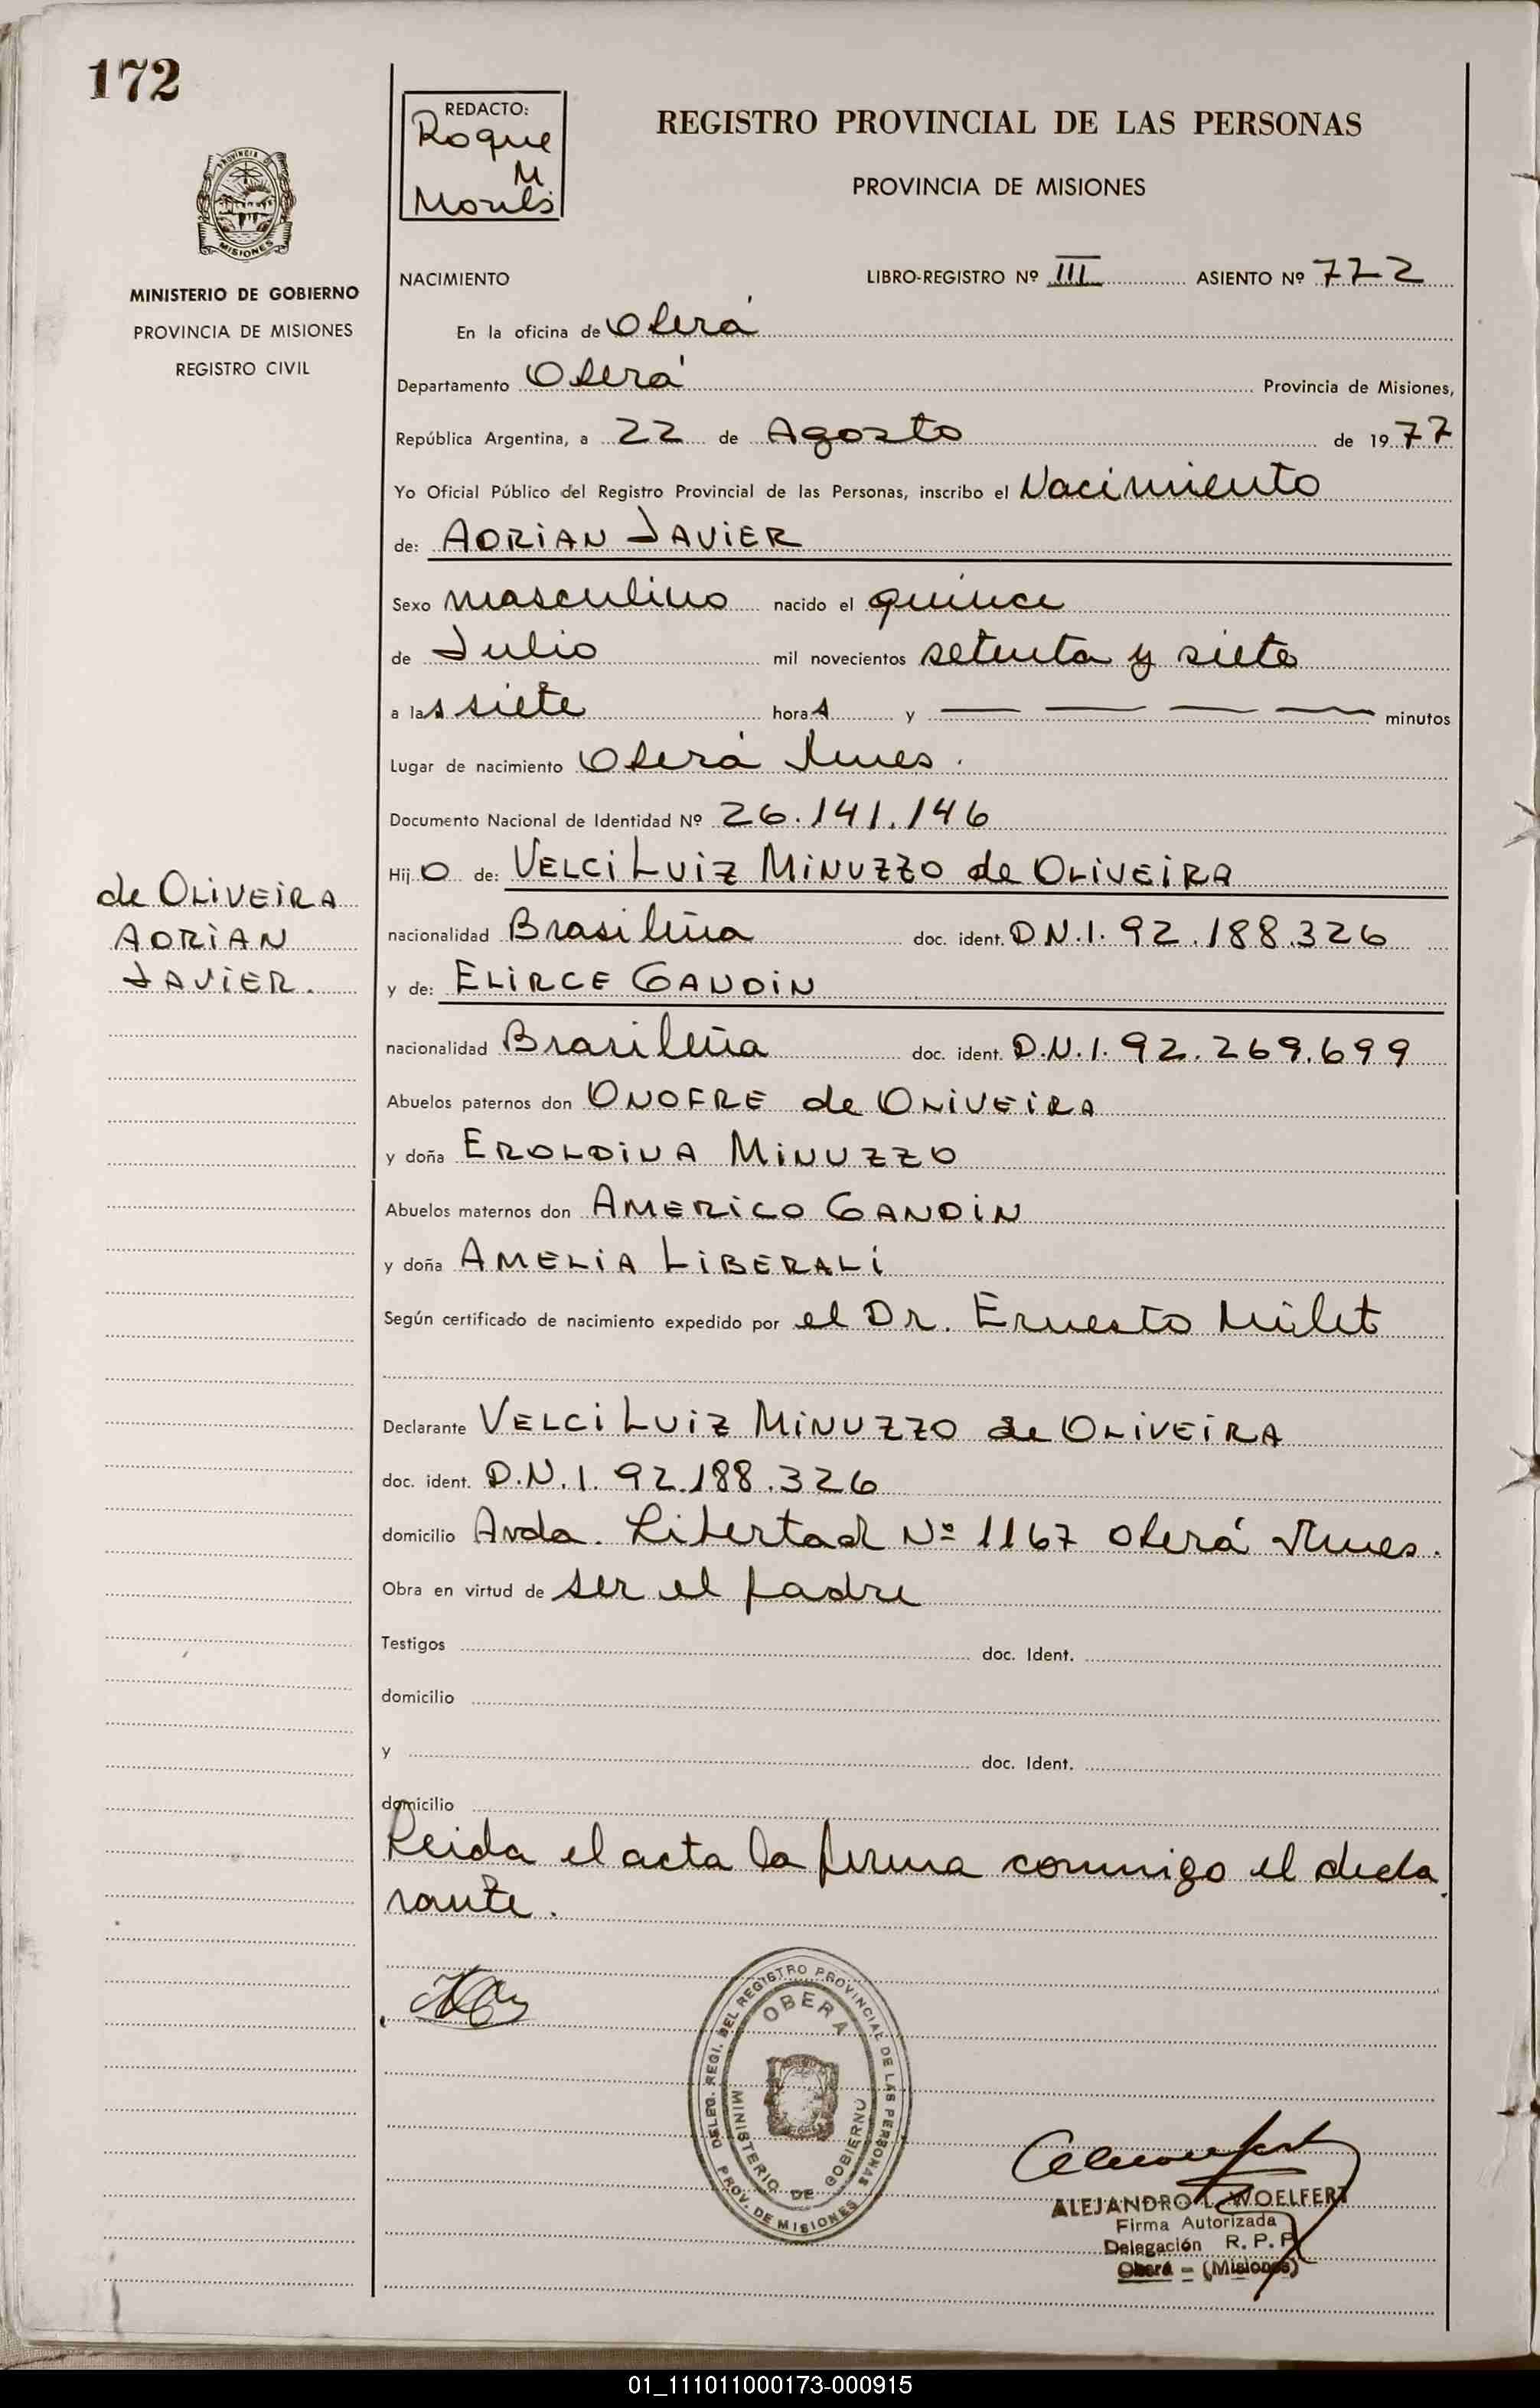 172
REDACTO:
Roque
M
REGISTRO PROVINCIAL DE LAS PERSONAS
PROVINCIA DE MISIONES
PROVINCIA DE
MISIONES
MINISTERIO DE GOBIERNO
PROVINCIA DE MISIONES
REGISTRO CIVIL
NACIMIENTO LIBRO-REGISTRO Nº III ASIENTO Nº 772
En la oficina de Oberá
Departamento Oberá Provincia de Misiones,
República Argentina, a 22 de Agosto de 1977
Yo Oficial Público del Registro Provincial de las Personas, inscribo el Nacimiento
de: ADRIAN JAVIER
Sexo masculino nacido el quince
de Julio mil novecientos setenta y siete
a las siete horas y — — — — minutos
Lugar de nacimiento Oberá Mnes.
Documento Nacional de Identidad Nº 26.141.146
Hijo de: VELCI LUIZ MINUZZO de OLIVEIRA
de OLIVEIRA
ADRIAN
JAVIER.
nacionalidad Brasileña doc. ident. D.N.I. 92.188.326
y de: ELIRCE GANDIN
nacionalidad Brasileña doc. ident. D.N.I. 92.269.699
Abuelos paternos don ONOFRE de OLIVEIRA
y doña EROLDINA MINUZZO
Abuelos maternos don AMERICO GANDIN
y doña AMELIA LIBERALI
Según certificado de nacimiento expedido por el Dr. Ernesto Milet
Declarante VELCI LUIZ MINUZZO de OLIVEIRA
doc. ident. D.N.I. 92.188.326
domicilio Avda. Libertad Nº 1167 Oberá Mnes.
Obra en virtud de ser el padre
Testigos doc. Ident.
domicilio
y doc. Ident.
domicilio
Leida el acta la firma conmigo el decla
rante.
DELEG. REGI. DEL REGISTRO PROVINCIAL DE LAS PERSONAS
OBERA
MINISTERIO DE GOBIERNO
PROV. DE MISIONES
ALEJANDRO L. WOELFERT
Firma Autorizada
Delegación R. P. P.
Oberá - (Misiones)
01_111011000173-000915